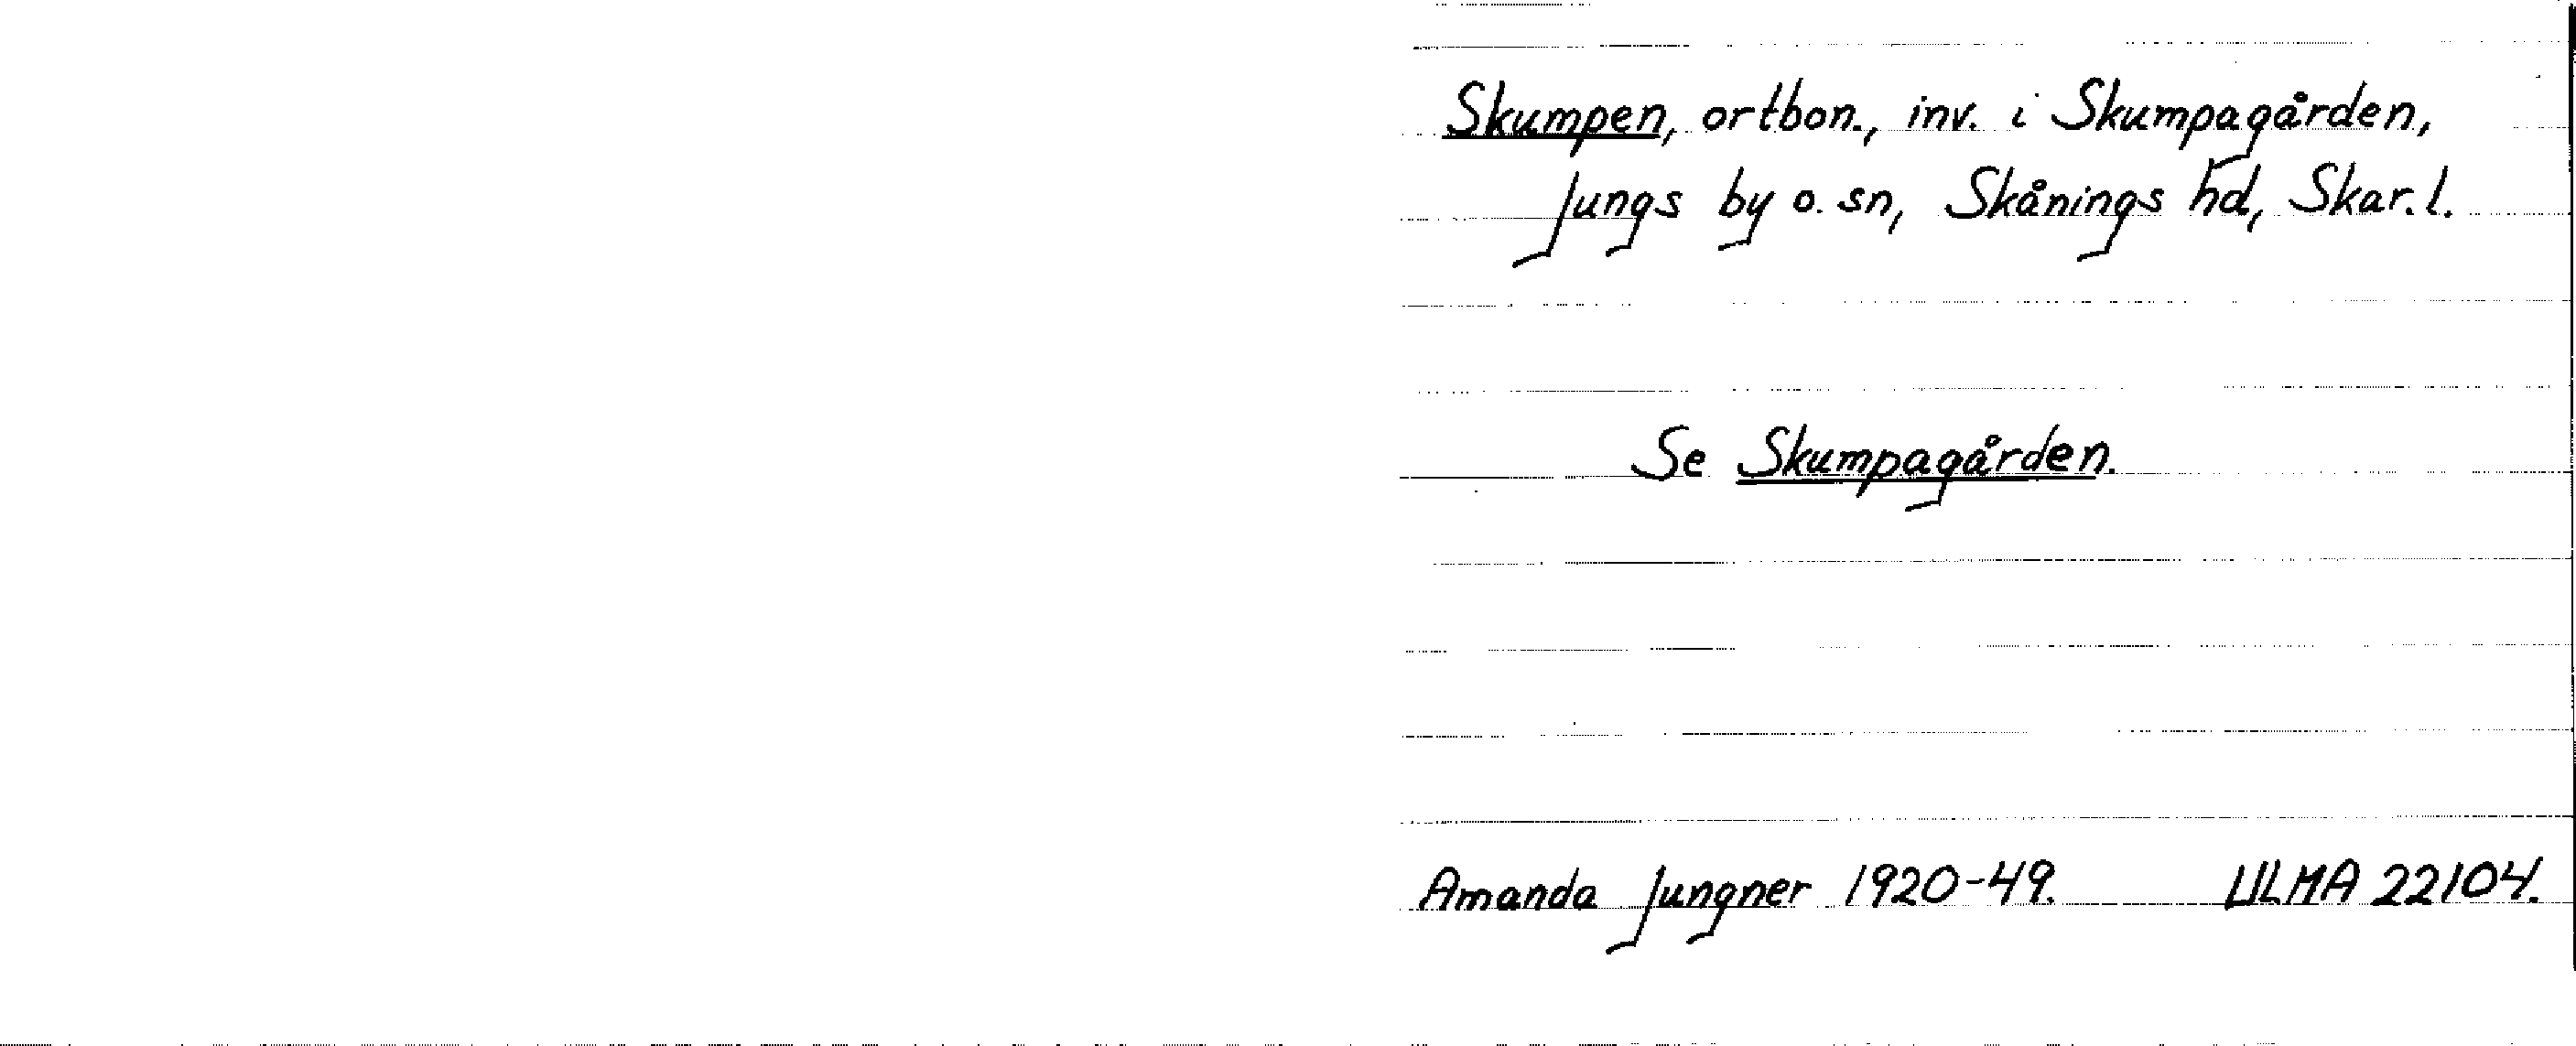 Skumpen, ortbon., inv. i Skumpagården,
Jungs by o. sn, Skånings hd, Skar. l.
Se Skumpagården.
Amanda Jungner 1920-49. ULMA 22104.